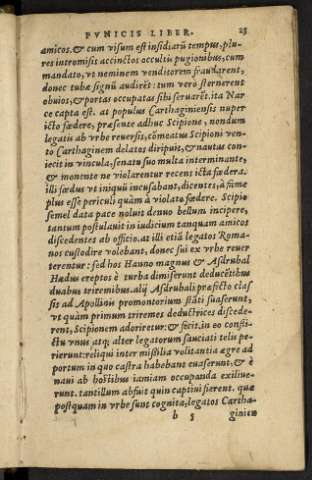 PVNICIS LIBER. 25
amicos. & cum visum est insidiarū tempus, plu-
res intromisis accinctos occultis pugionibus, cum
mandato, ut neminem venditorem fraudarent,
donec tubæ signū audirēt: tum vero sternerent
obuios, & portas occupatas sibi seruarēt. ita Nar
ce capta est. at populus Carthaginiensis nuper
icto fœdere, præsente adhuc Scipione, nondum
legatis ab vrbe reuersis, cōmeatus Scipioni ven-
to Carthaginem delatos diripuit, & nautas con-
iecit in vincula, senatu suo multa interminante,
& monente ne violarentur recens icta fœdera.
illi fœdus vt iniquū incusabant, dicentes, à fame
plus esse periculi quàm à violato fœdere. Scipio
semel data pace noluit denuo bellum incipere,
tantum postulauit in iudicium tanquam amicos
discedentes ab officio. at illi etiā legatos Roma-
nos custodire volebant, donec sui ex vrbe reuer
terentur: sed hos Hanno magnus & Asdrubal
Hædus ereptos è turba dimiserunt deducētibus
duabus triremibus. alij Asdrubali præfecto clas-
sis ad Apollinis promontorium stāti suaserunt,
vt quàm primum triremes deductrices discede-
rent, Scipionem adoriretur: & fecit. in eo confli-
ctu vnus atq; alter legatorum sauciati telis pe-
rierunt: reliqui inter missilia volitantia ægre ad
portum in quo castra habebant euaserunt, & è
naui ab hostibus iamiam occupanda exilue-
runt. tantillum abfuit quin captiui fierent. quæ
postquam in vrbe sunt cognita, legatos Cartha-
b 5 ginien